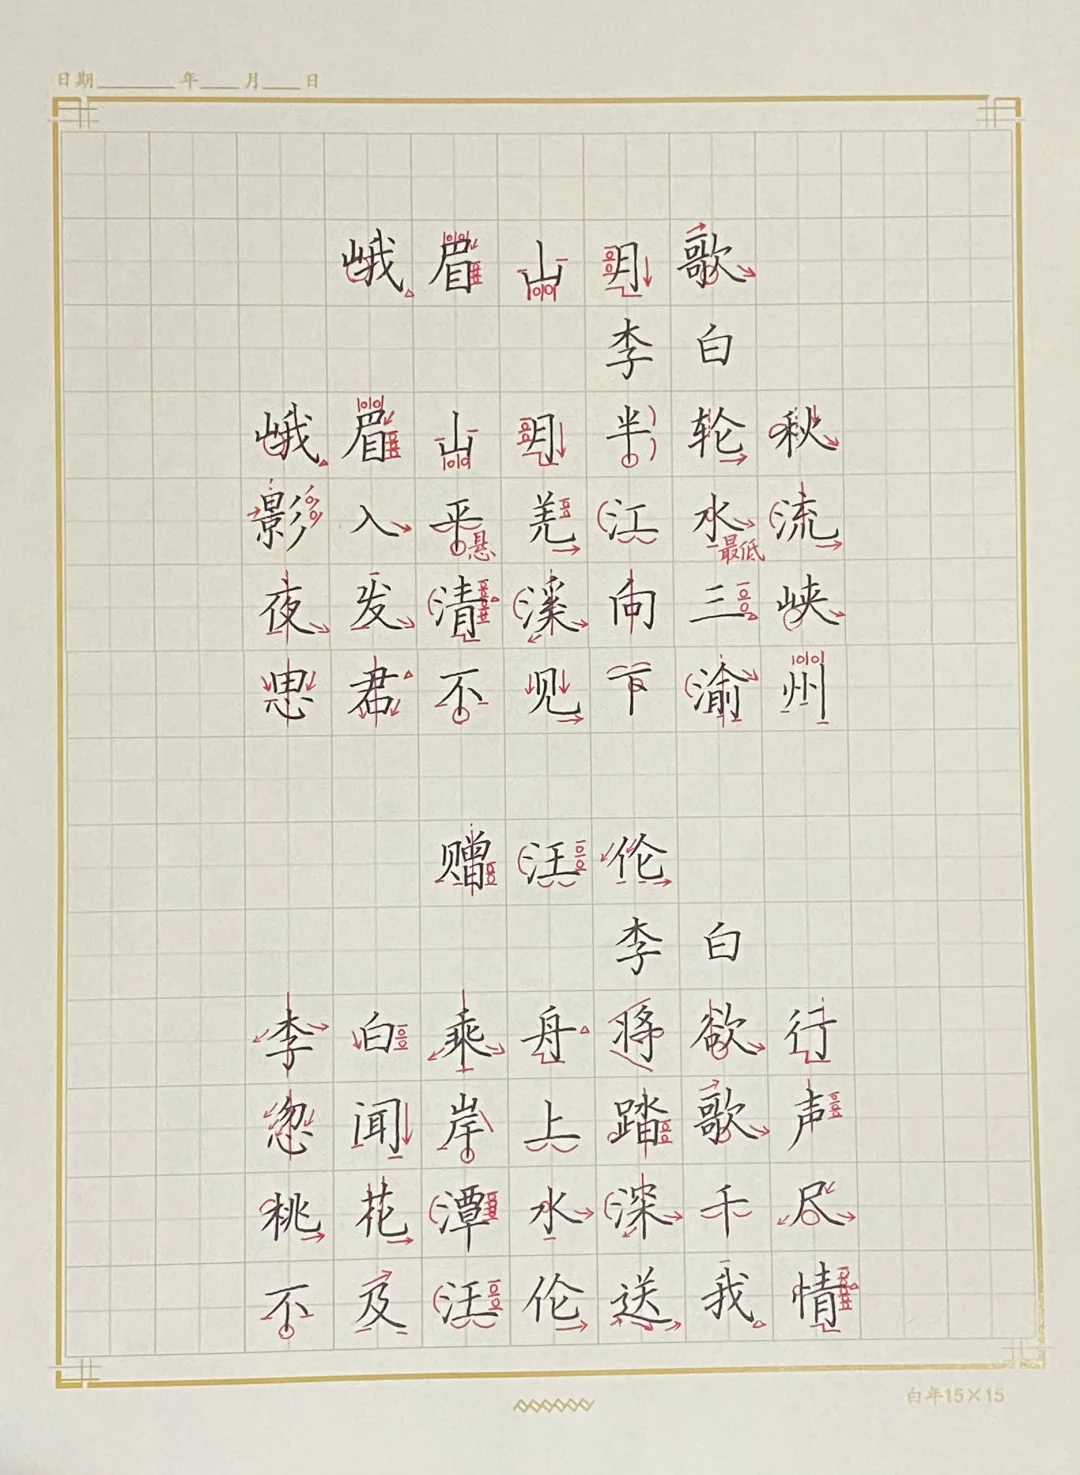 日期 年 月 日
峨眉山月歌
李白
峨眉山月半轮秋
影入平羌江水流
悬
最低
夜发清溪向三峡
思君不见下渝州
赠汪伦
李白
李白乘舟将欲行
忽闻岸上踏歌声
桃花潭水深千尺
不及汪伦送我情
白年15×15